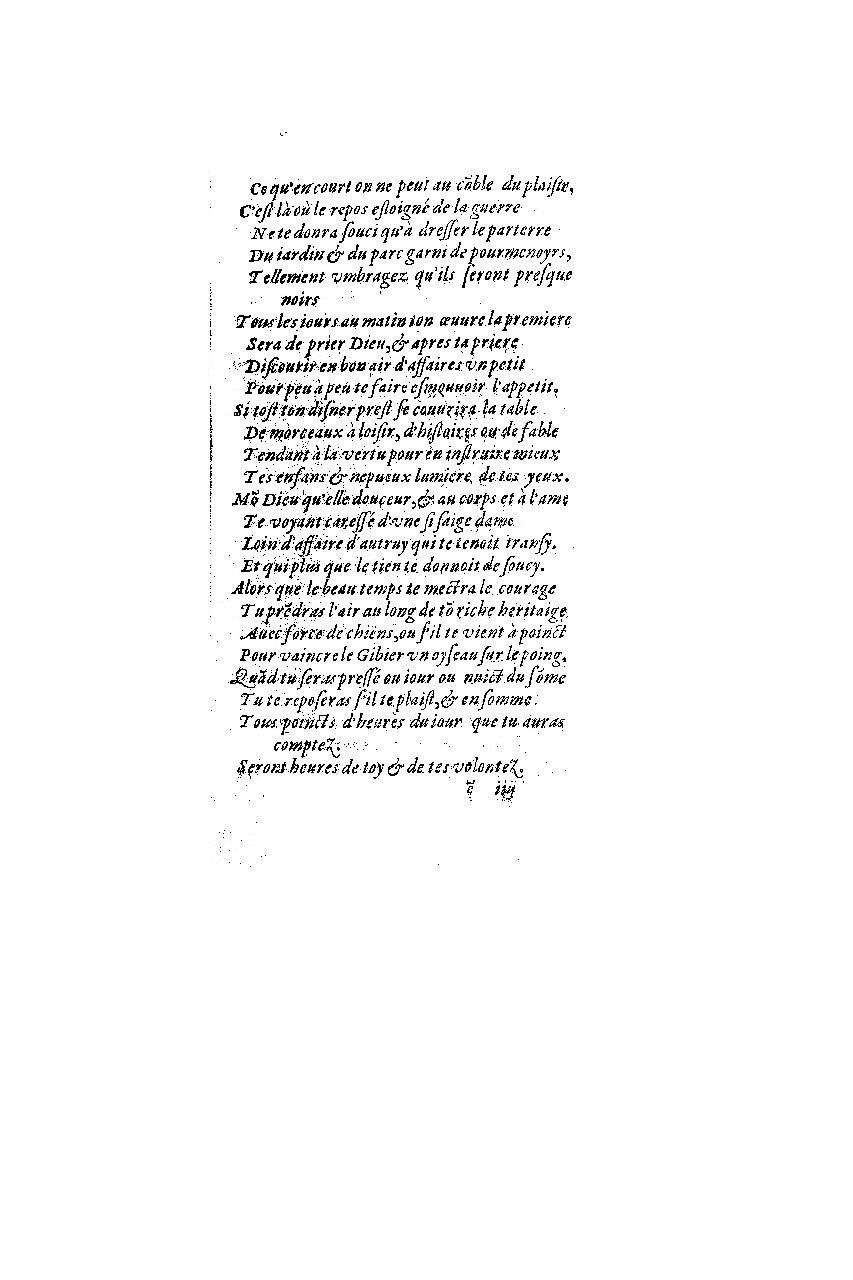 Ce qu'en court on ne peut au cõble du plaiſir,
C'eſt là où le repos eſloigné de la guerre
Ne te donra ſouci qu'à dreſſer le parterre
Du iardin & du parc garni de pourmenoyrs,
Tellement vmbragez qu'ils ſeront preſque
noirs
Tous les iours au matin ton œuure la premiere
Sera de prier Dieu, & apres ta priere
Diſcourir en bon air d'affaires vn petit
Pour peu à peu te faire eſmouuoir l'appetit,
Si toſt ton diſner preſt ſe couurira la table
De morceaux à loiſir, d'hiſtoires ou de fable
Tendant à la vertu pour en inſtruire mieux
Tes enfans & nepueux lumiere de tes yeux.
Mõ Dieu qu'elle douceur, & au corps et à l'ame
Te voyant careſſé d'vne ſi ſaige dame
Loin d'affaire d'autruy qui te tenoit tranſy.
Et qui plus que le tien te donnoit de ſoucy.
Alors que le beau temps te mectra le courage
Tu prẽdras l'air au long de tõ riche heritaige
Auec force de chiens, ou ſ'il te vient à poinct
Pour vaincre le Gibier vn oyſeau ſur le poing.
Quãd tu ſeras preſſé ou iour ou nuict du ſõme
Tu te repoſeras ſ'il te plaiſt, & en ſomme
Tous poincts d'heures du iour que tu auras
comptez.
Seront heures de toy & de tes volontez.
ẽ iiij